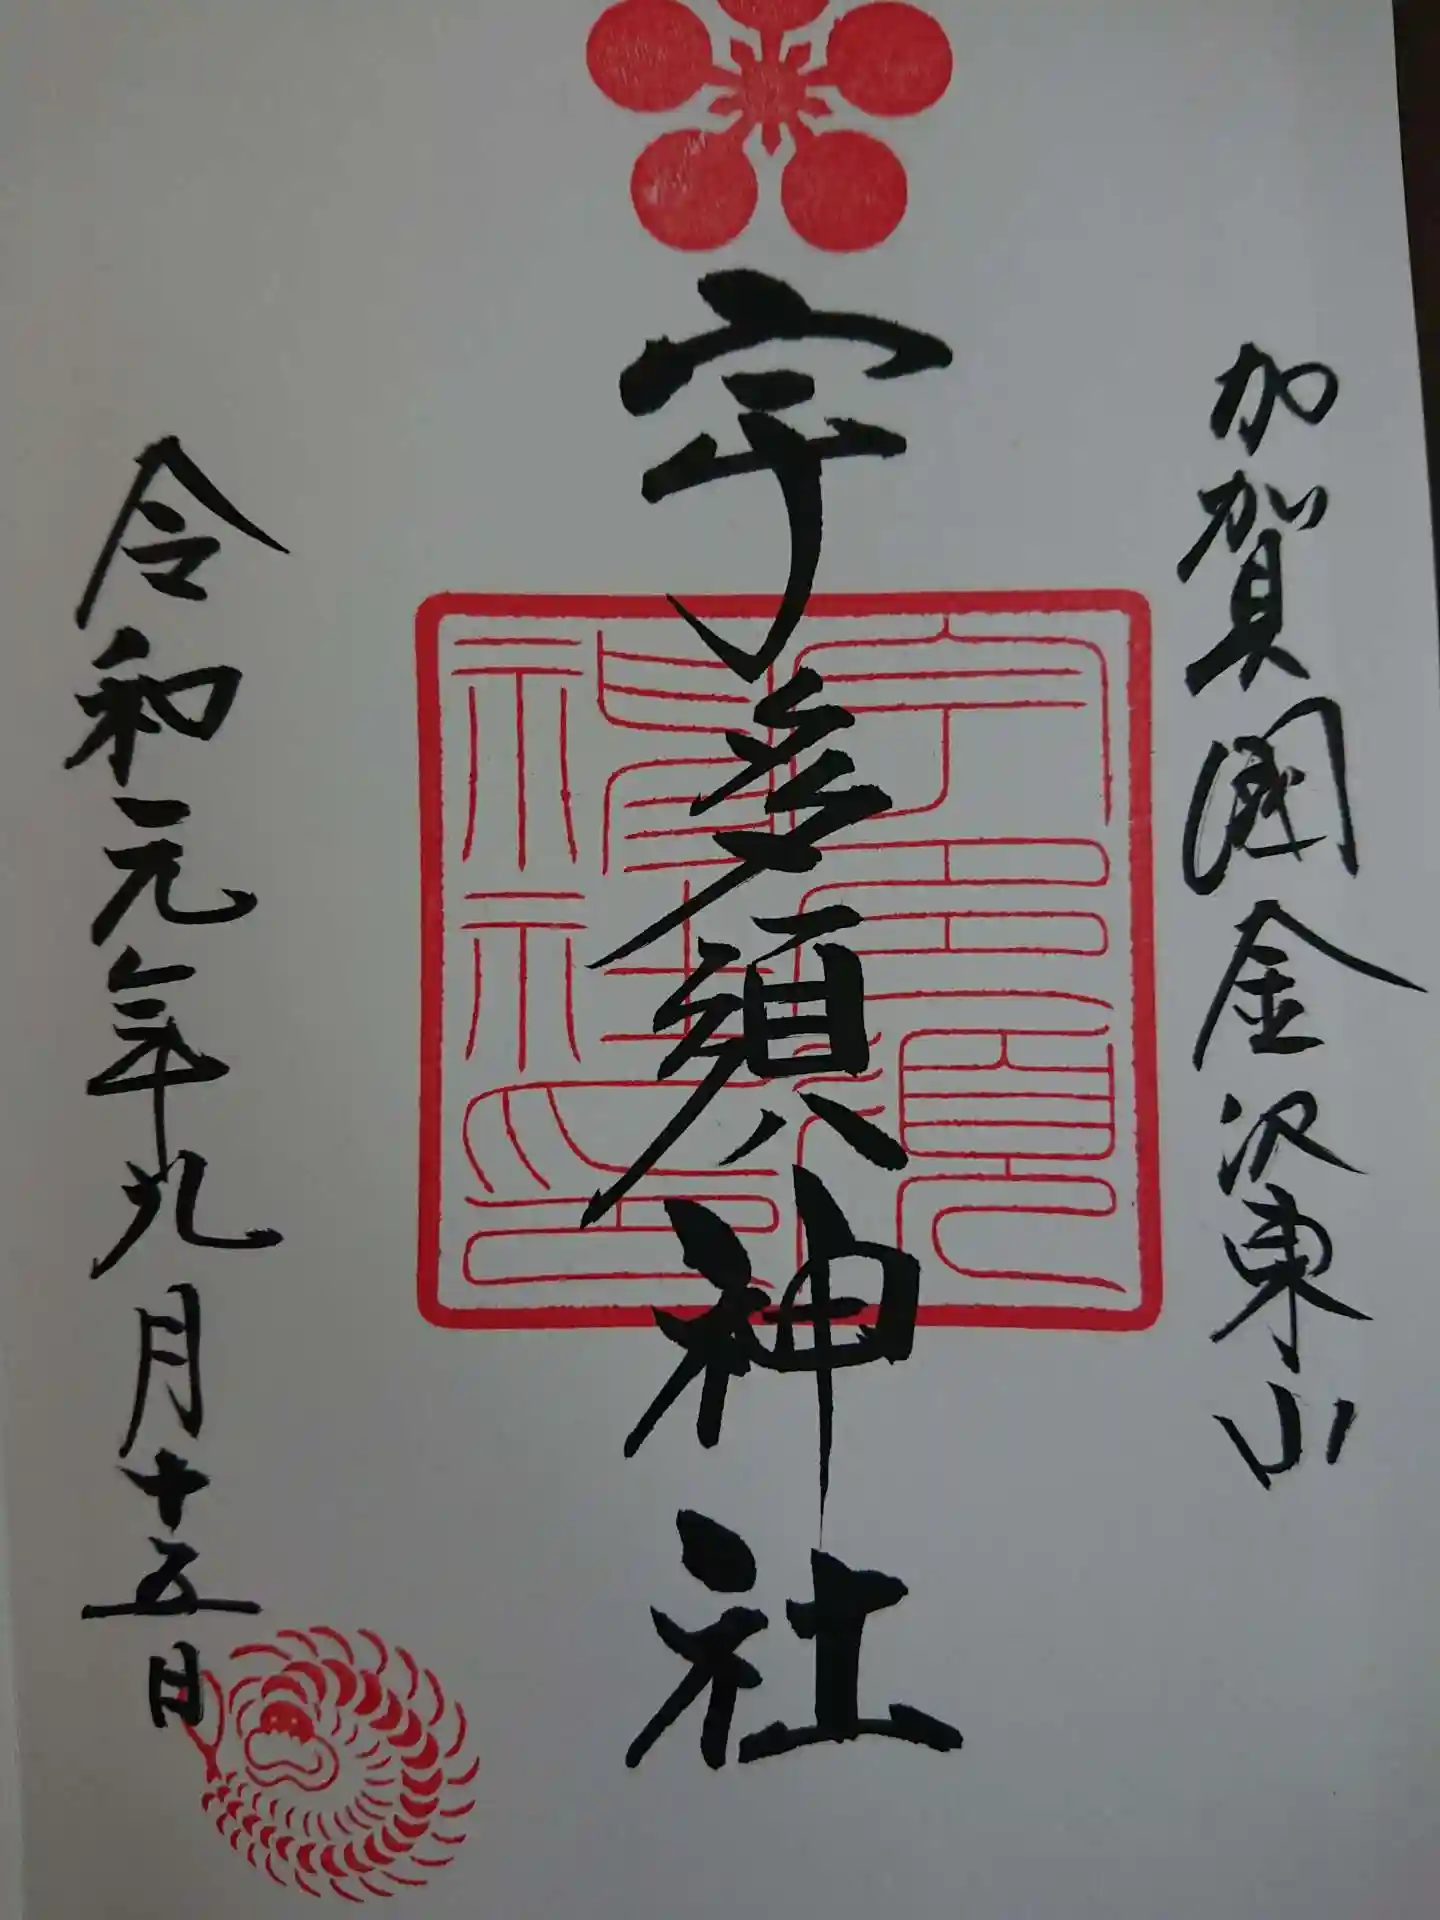 加賀國金沢東山
宇多須神社
宇多須神社印
令和元年九月十五日